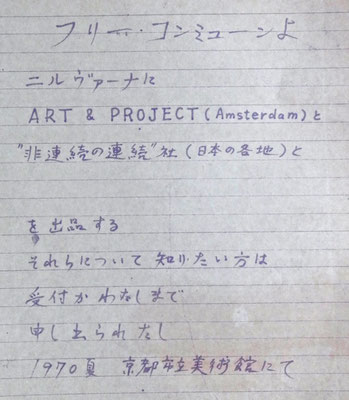 フリー・コンミューンよ
ニルヴァーナに
ART & PROJECT (Amsterdam) と
"非連続の連続"社 (日本の各地) と
を出品する
それらについて知りたい方は
受付かわたしまで
申し出られたし
1970夏 京都市立美術館にて